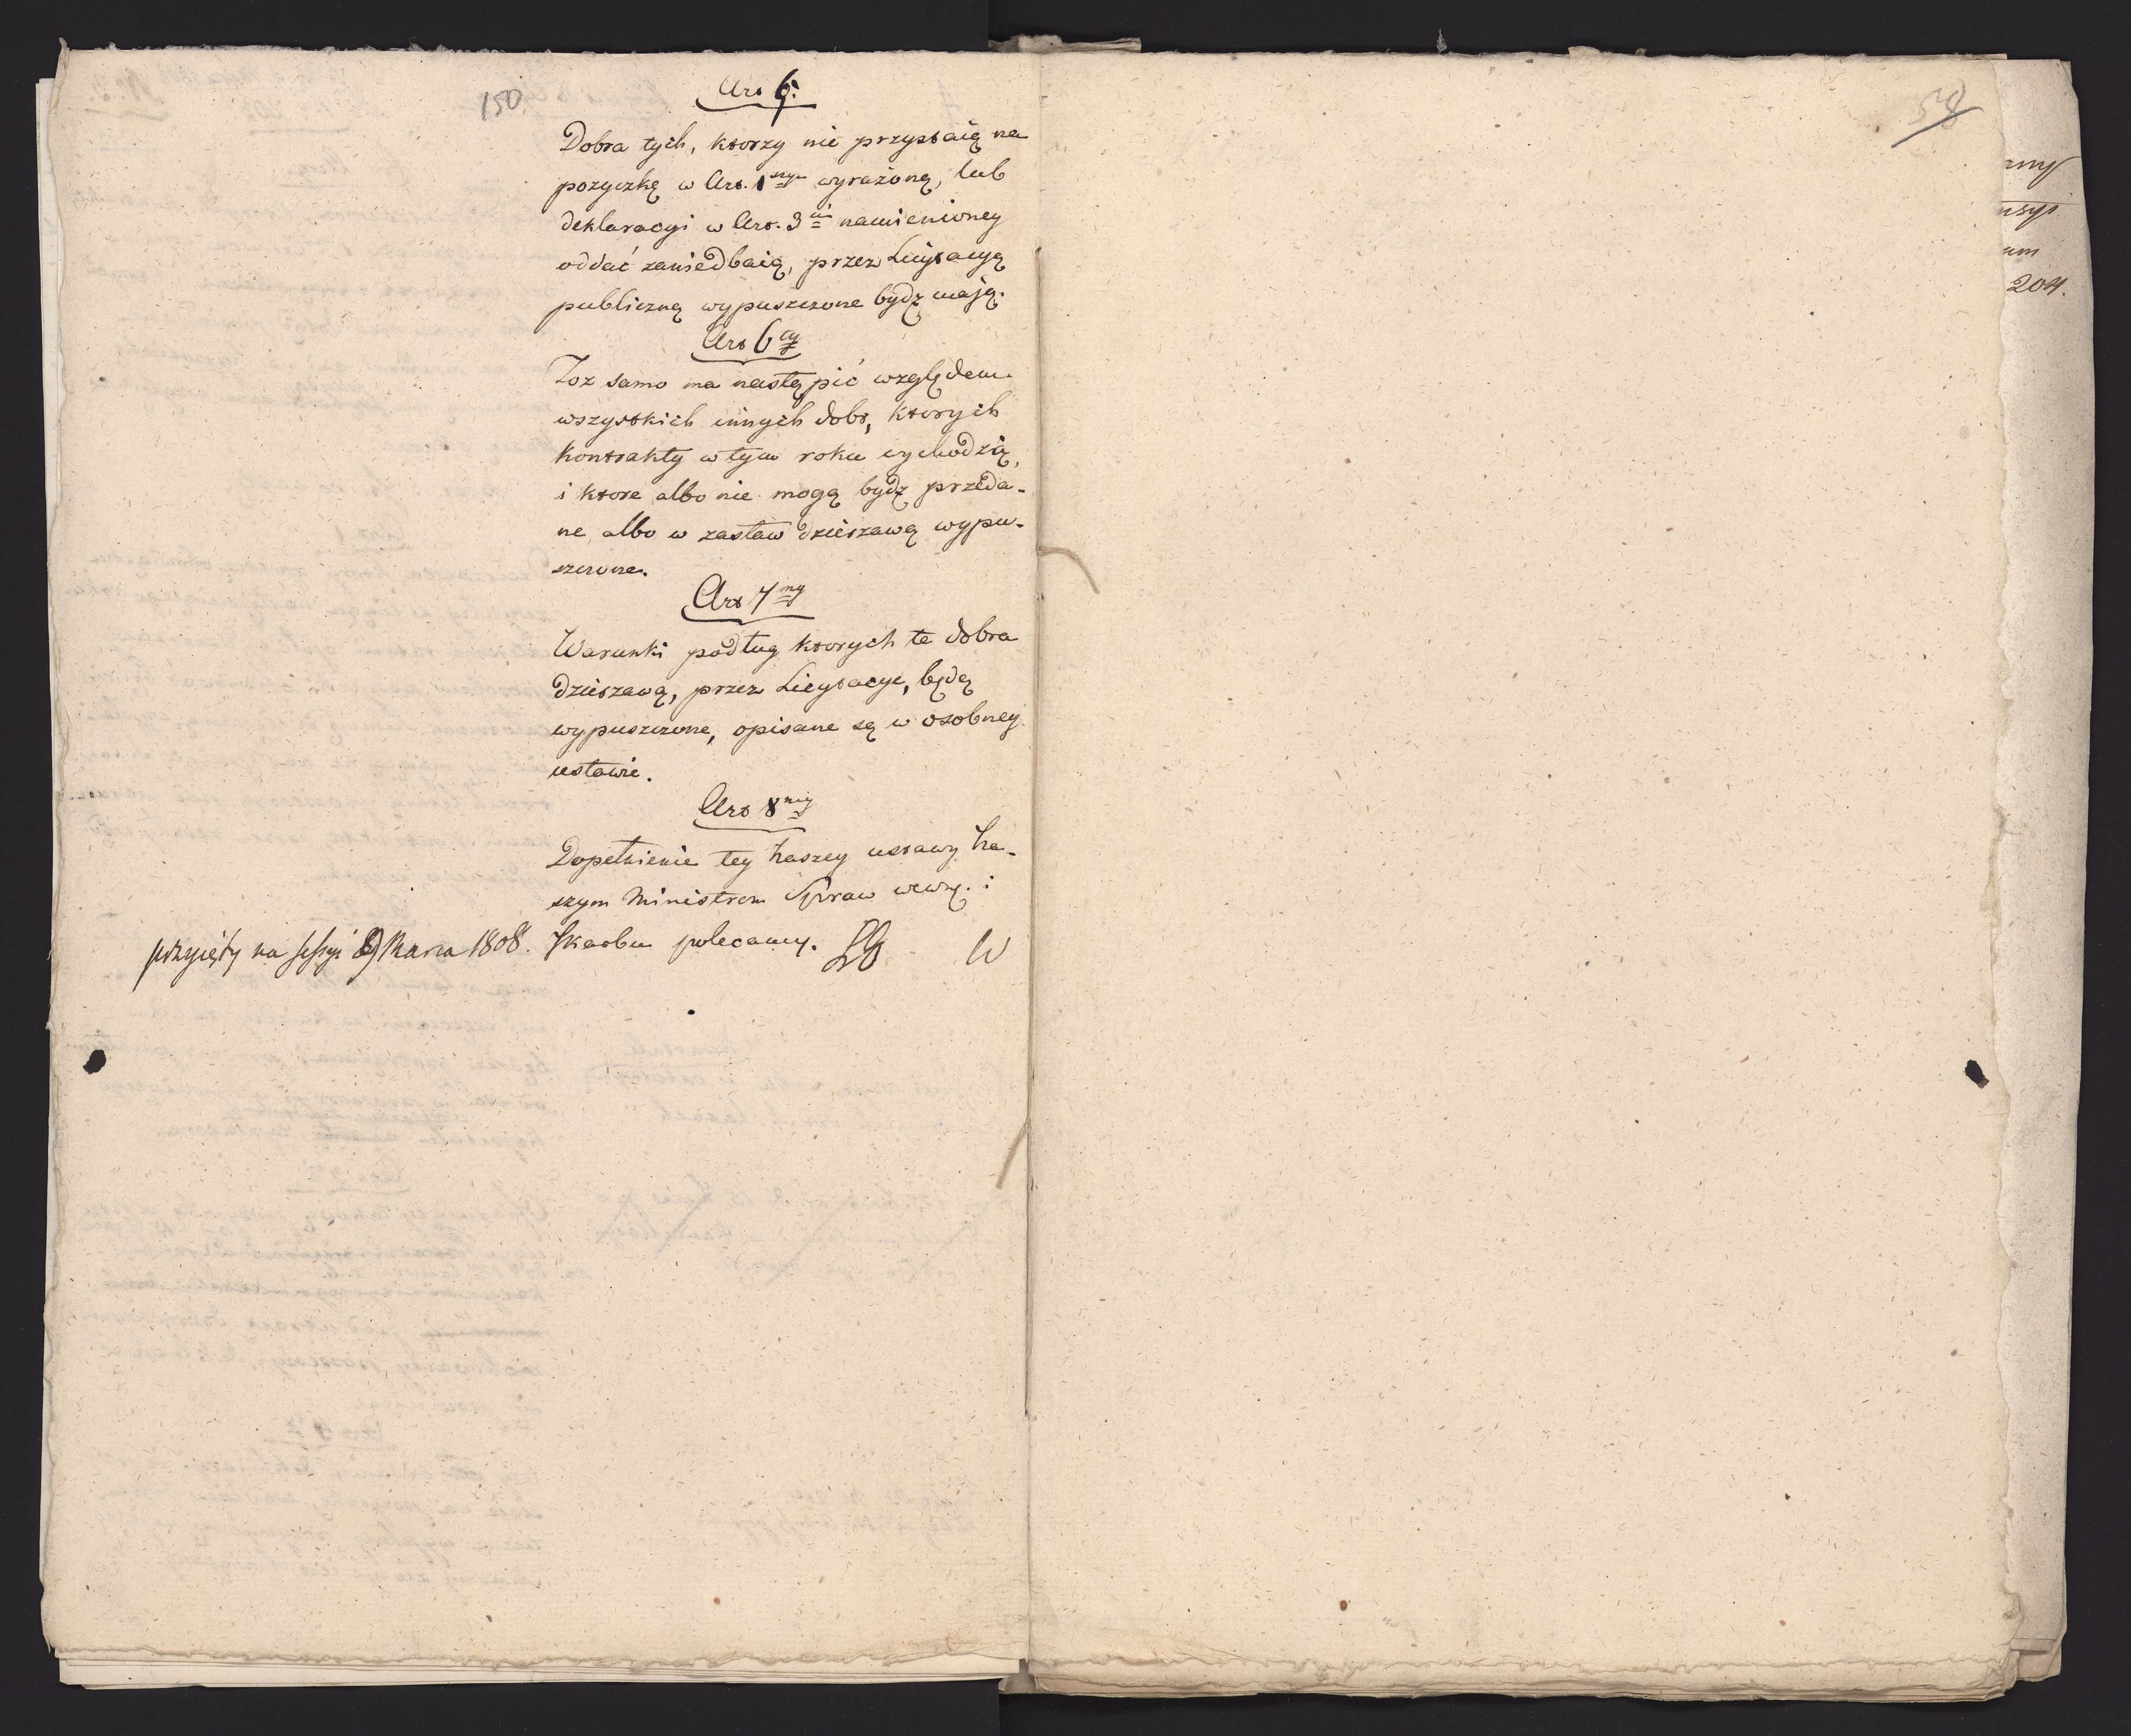 150.
Art 6.
Dobra tych, ktorzy nie przystaią na
pozyczkę w Art. 1szym wyrażoną, lub
deklaracyi w Art. 3m namienioney
oddać zaniedbaią, przez Licytacyą
publiczną wypuszczone bydź mają.
Art 6ty
Toż samo ma nastąpić względem
wszystkich innych dobr, ktorych
kontrakty w tym roku wychodzią,
i ktore albo nie mogą bydź przeda-
ne albo w zastaw dzierzawą wypu-
szczone.
Art 7my
Warunki podług ktorych te dobra
dzierzawą, przez Licytacye, będą
wypuszczone, opisane są w osobney
ustawie.
Art 8my
Dopełnienie tey Naszey ustawy Na-
szym Ministrom Spraw wewnę. i
Skarbu polecamy.
przyięty na sessyi 9 Marca 1808.
58
204.